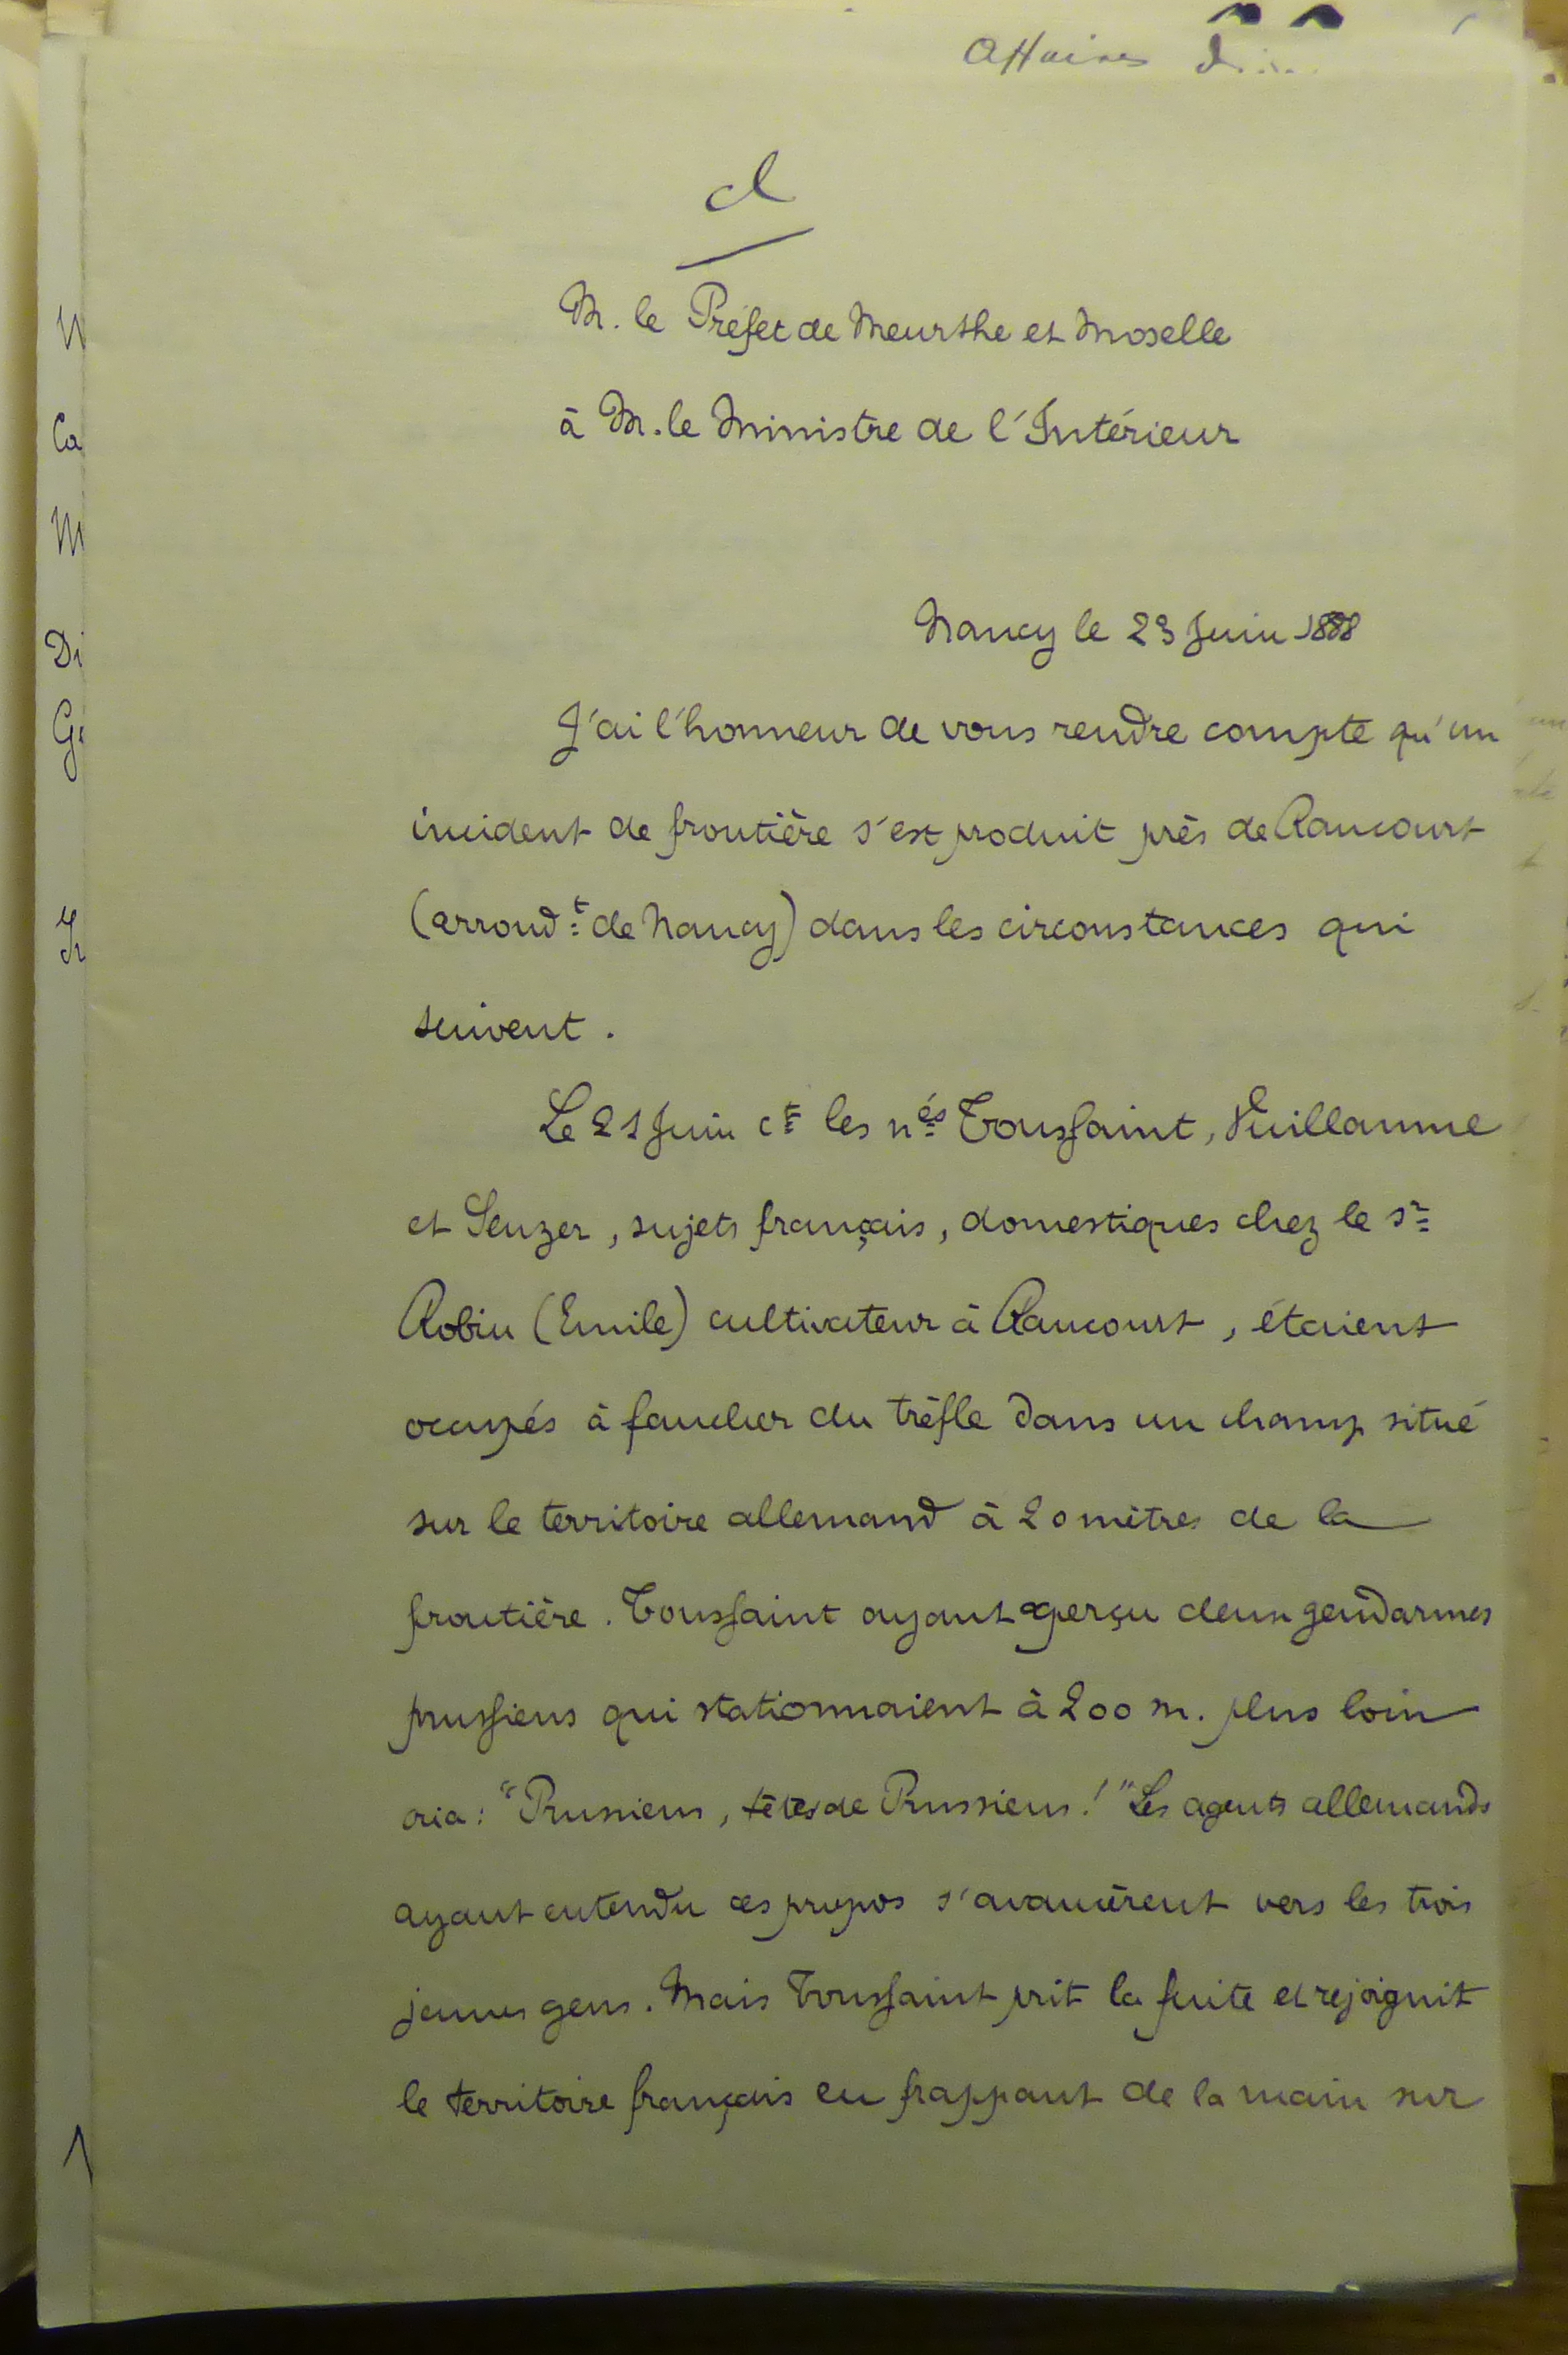 Affaires
cl
M. le Préfet de Meurthe et Moselle
à M. le Ministre de l'Intérieur
Nancy le 23 Juin 1888
J'ai l'honneur de vous rendre compte qu'un
incident de frontière s'est produit près de Raucourt
(arrondt de Nancy) dans les circonstances qui
suivent.
Le 21 Juin ct les nés Toussaint, Vuillaume
et Seuzer, sujets français, domestiques chez le sr
Robin (Emile) cultivateur à Raucourt, étaient
occupés à faucher du trèfle dans un champ situé
sur le territoire allemand à 20 mètres de la
frontière. Toussaint ayant aperçu deux gendarmes
prussiens qui stationnaient à 200 m. plus loin
cria: "Prussiens, têtes de Prussiens!" Les agents allemands
ayant entendu ces propos s'avancèrent vers les trois
jeunes gens. Mais Toussaint prit la fuite et rejoignit
le territoire français en frappant de la main sur